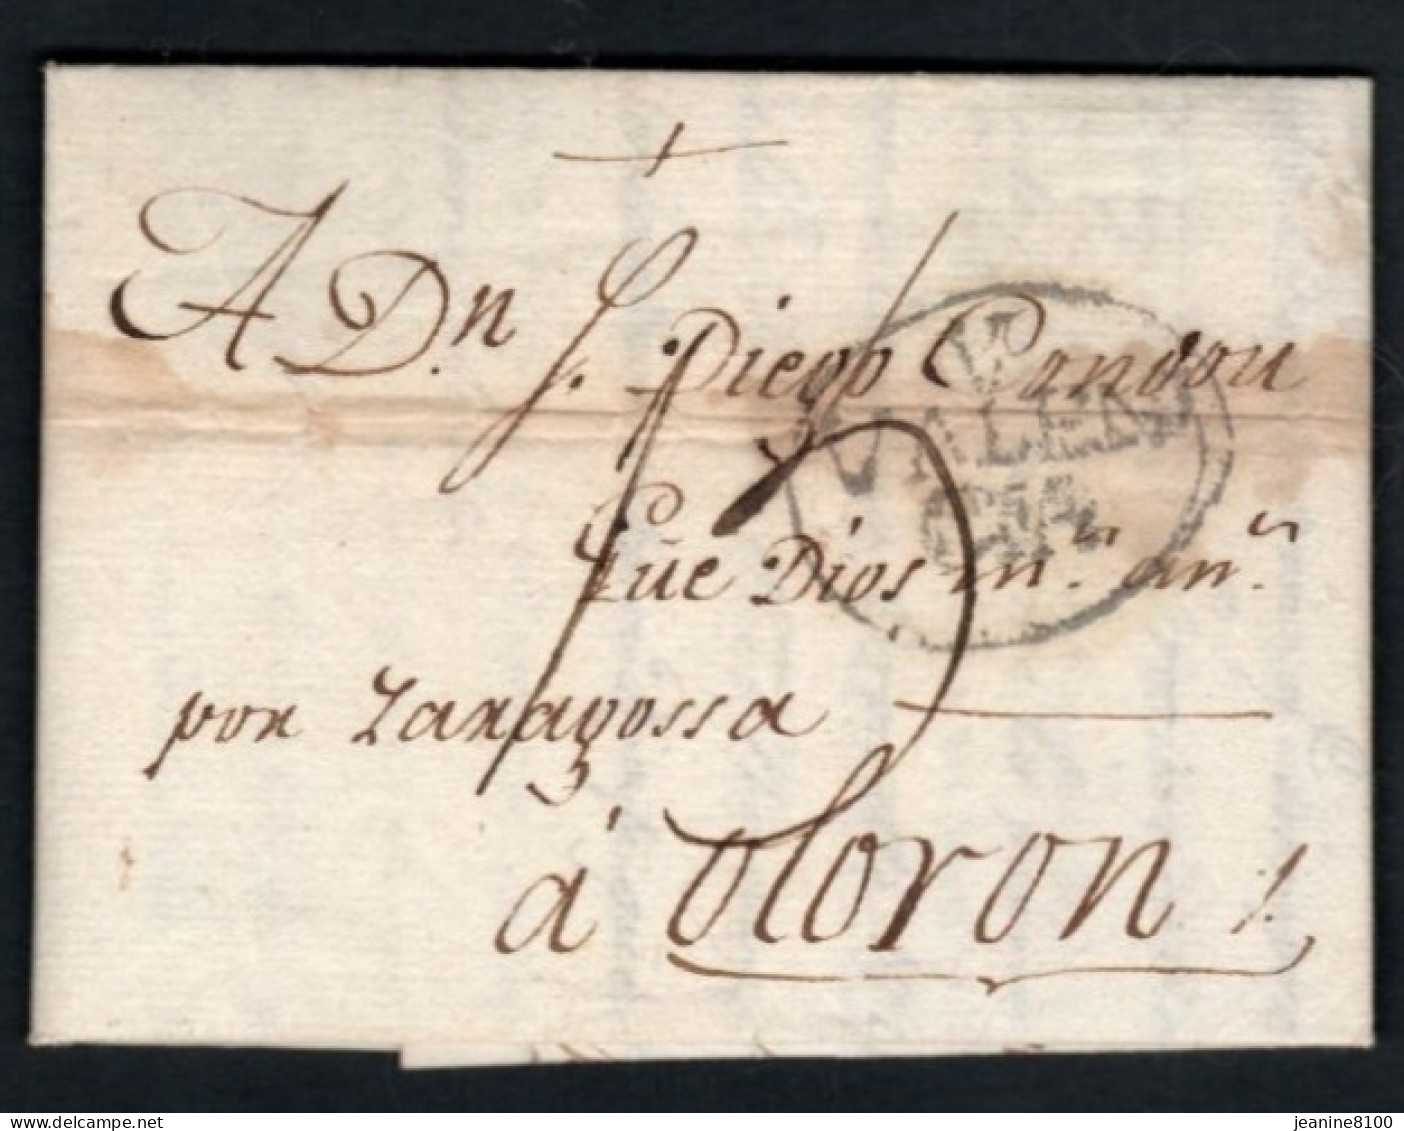 A Dn. J. Diego Condou
que Dios ms. ans.
por Zaragossa
á oloron
delcampe.net
jeanine8100